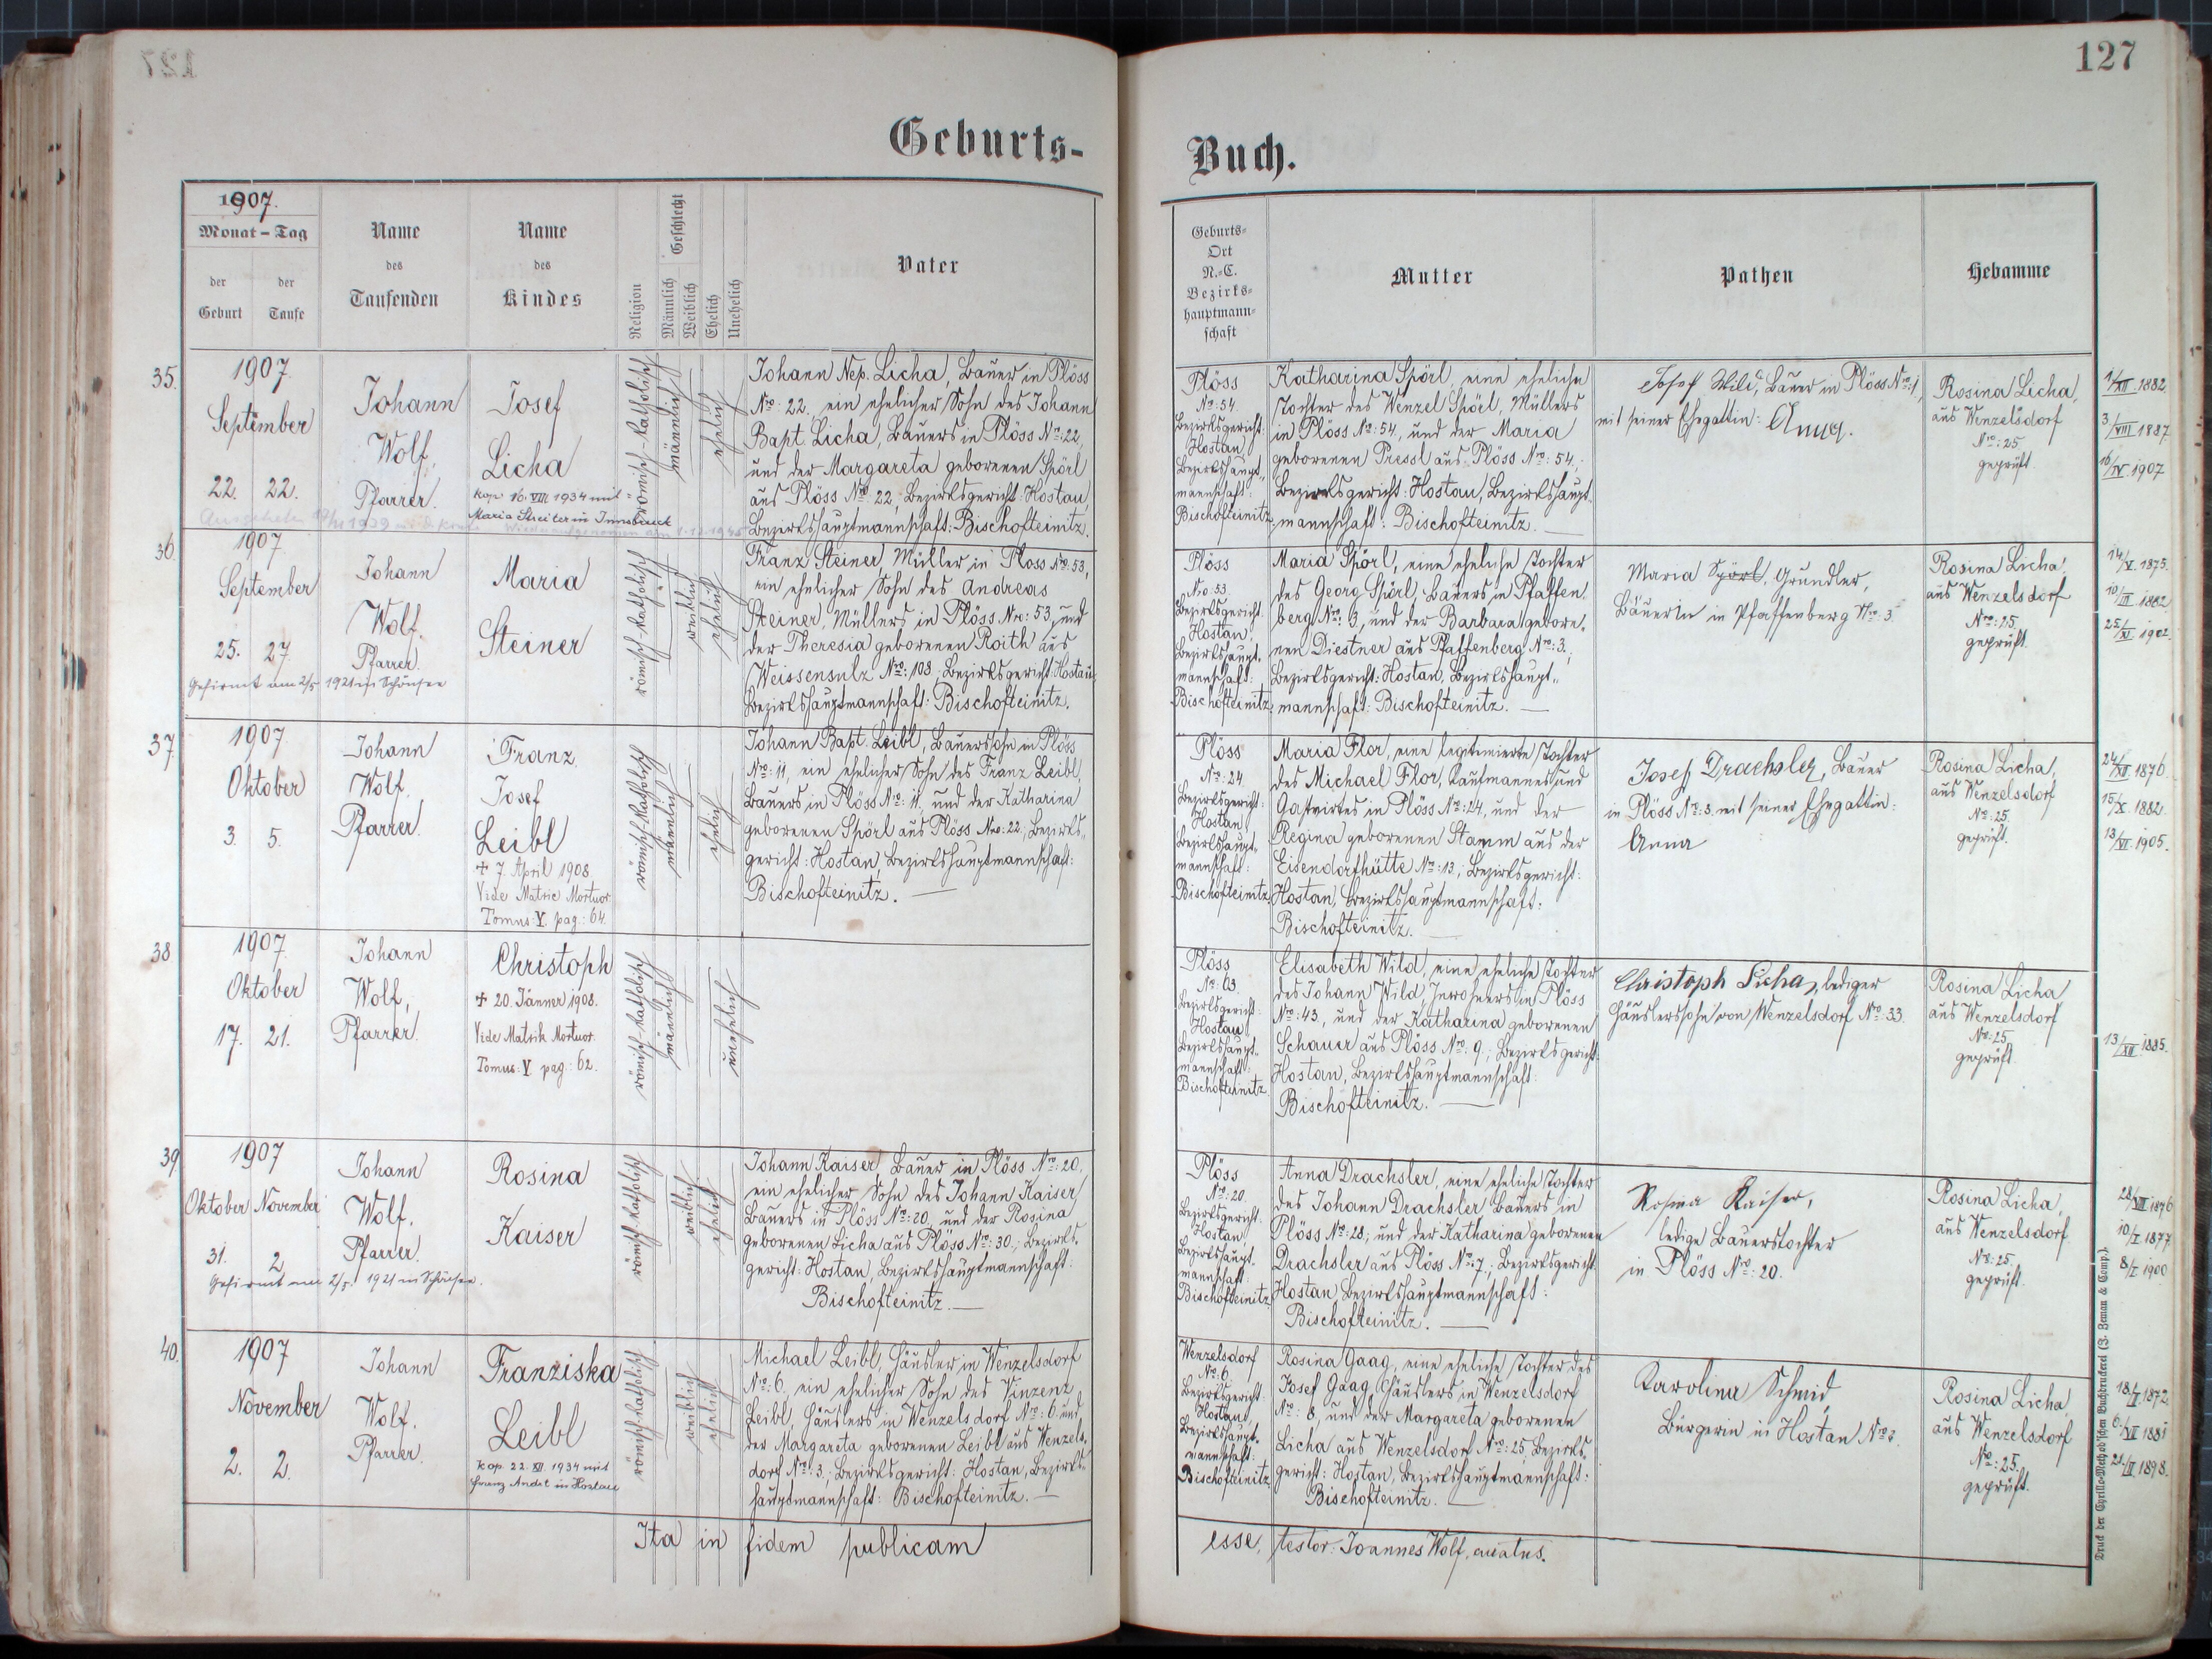 127
Geburts-
Buch.
1907.
Monat – Tag
der Geburt
der Taufe
Name des Taufenden
Name des Kindes
Religion
Geschlecht
Männlich
Weiblich
Ehelich
Unehelich
Vater
Geburts-
Ort
N.-C.
Bezirks-
hauptmann-
schaft
Mutter
Pathen
Hebamme
35.
1907.
September
22. 22.
Johann
Wolf,
Pfarrer.
Josef
Licha
kop. 16. VIII. 1934 mit
Maria Streiter in Innsbruck
römisch-katholisch
männlich
ehelich
Johann Nep. Licha, Bauer in Plöss
Nro: 22., ein ehelicher Sohn des Johann
Bapt. Licha, Bauers in Plöss Nro: 22,
und der Margareta geborenen Spörl
aus Plöss Nro 22, Bezirksgericht: Hostau,
Bezirkshauptmannschaft: Bischofteinitz.
Plöss
Nro: 54.
Bezirksgericht:
Hostau
Bezirkshaupt-
mannschaft:
Bischofteinitz
Katharina Spörl, eine eheliche
Tochter des Wenzel Spörl, Müllers
in Plöss Nro: 54, und der Maria
geborenen Pressl aus Plöss Nro: 54.;
Bezirksgericht: Hostau, Bezirkshaupt-
mannschaft: Bischofteinitz.
Bauer in Plöss Nro: 1,
mit seiner Ehegattin: Anna.
Rosina Licha,
aus Wenzelsdorf
Nro: 25
geprüft.
1/XII. 1882.
3/VIII 1887
16/IV 1907
36.
1907.
September
25. 27.
Gefirmt am 2/5 1921 in Schönsee
Johann
Wolf.
Pfarrer.
Maria
Steiner
römisch-katholisch
weiblich
ehelich
Franz Steiner, Müller in Plöss Nro. 53,
ein ehelicher Sohn des Andreas
Steiner, Müllers in Plöss Nro: 53, und
der Theresia geborenen Roith aus
Weissensulz Nro: 108, Bezirksgericht: Hostau,
Bezirkshauptmannschaft: Bischofteinitz.
Plöss
Nro 53.
Bezirksgericht.
Hostau,
Bezirkshaupt-
mannschaft:
Bischofteinitz.
Maria Spörl, eine eheliche Tochter
des Georg Spörl, Bauers in Pfaffen-
berg Nro: 3, und der Barbara gebore-
nen Diestner aus Pfaffenberg Nro: 3.;
Bezirksgericht: Hostau, Bezirkshaupt-
mannschaft: Bischofteinitz.
Maria Spörl, Gründler,
Bäuerin in Pfaffenberg Nro: 3
Rosina Licha,
aus Wenzelsdorf
Nro: 25,
geprüft.
14/V. 1875.
10/III 1882
25/XI 1902.
37.
1907.
Oktober
3. 5.
Johann
Wolf.
Pfarrer.
Franz
Josef
Leibl
+ 7. April 1908.
Vide Matric Mortuor
Tomus: V. pag: 64.
römisch-katholisch
männlich
ehelich
Johann Bapt. Leibl, Bauerssohn in Plöss
Nro: 11, ein ehelicher Sohn des Franz Leibl,
Bauers in Plöss Nro: 11. und der Katharina
geborenen Spörl aus Plöss Nro: 22; Bezirks-
gericht: Hostau, Bezirkshauptmannschaft:
Bischofteinitz.
Plöss
Nro: 24
Bezirksgericht:
Hostau,
Bezirkshaupt-
mannschaft:
Bischofteinitz.
Maria Flor, eine legitimierte Tochter
des Michael Flor, Kaufmannes und
Gastwirtes in Plöss Nro: 24, und der
Regina geborenen Stamm aus der
Eisendorfhütte Nro: 13.; Bezirksgericht:
Hostau, Bezirkshauptmannschaft:
Bischofteinitz.
Josef Drachsler, Bauer
in Plöss Nro: 3. mit seiner Ehegattin:
Anna
Rosina Licha,
aus Wenzelsdorf
Nro: 25.
geprüft.
24/XII. 1876.
15/X. 1882.
13/VI. 1905.
38
1907.
Oktober
17. 21.
Johann
Wolf,
Pfarrer.
Christoph
+ 20. Jänner 1908.
Vide Matrik Mortuor.
Tomus: V pag: 62.
römisch-katholisch
männlich
unehelich
Plöss
Bezirksgericht:
Hostau
Bezirkshaupt-
mannschaft:
Bischofteinitz
Elisabeth Wild, eine eheliche Tochter
des Johann Wild, Inwohners in Plöss
Nro: 43, und der Katharina geborenen
Schauer aus Plöss Nro: 9.; Bezirksgericht:
Hostau, Bezirkshauptmannschaft:
Bischofteinitz.
Christoph Licha, lediger
Häuslerssohn von Wenzelsdorf Nro: 33.
Rosina Licha
aus Wenzelsdorf
Nro: 25
geprüft.
13/XII. 1885.
39
1907
Oktober November
31. 2
Gefirmt am 2/5. 1921 in Schönsee.
Johann
Wolf.
Pfarrer.
Rosina
Kaiser
römisch-katholisch
weiblich
ehelich
Johann Kaiser, Bauer in Plöss Nro: 20.
ein ehelicher Sohn des Johann Kaiser
Bauers in Plöss Nro: 20, und der Rosina
geborenen Licha aus Plöss Nro: 30.; Bezirks-
gericht: Hostau, Bezirkshauptmannschaft:
Bischofteinitz.
Plöss
Nro: 20
Bezirksgericht.
Hostau
Bezirkshaupt-
mannschaft:
Bischofteinitz
Anna Drachsler, eine eheliche Tochter
des Johann Drachsler Bauers in
Plöss Nro: 28, und der Katharina geborenen
Drachsler aus Plöss Nro: 7.; Bezirksgericht:
Hostau, Bezirkshauptmannschaft:
Bischofteinitz.
Rosina Kaiser,
ledige Bauerstochter
in Plöss Nro: 20.
Rosina Licha,
aus Wenzelsdorf
Nro: 25.
geprüft.
10/I 1877
8/I 1900
40.
1907
November
2. 2.
Johann
Wolf.
Pfarrer.
Franziska
Leibl
kop. 22. XII. 1934 mit
Franz Andel in Hostau
römisch-katholisch
weiblich
ehelich
Michael Leibl, Häusler in Wenzelsdorf
Nro: 6., ein ehelicher Sohn des Vinzenz
Leibl, Häuslers in Wenzelsdorf Nro: 6. und
der Margareta geborenen Leibl aus Wenzels-
dorf Nro: 3,; Bezirksgericht: Hostau, Bezirks-
hauptmannschaft: Bischofteinitz.
Wenzelsdorf
Nro: 6
Bezirksgericht:
Hostau,
Bezirkshaupt-
mannschaft:
Bischofteinitz.
Rosina Gaag, eine eheliche Tochter des
Josef Gaag, Häuslers in Wenzelsdorf
Nro: 8, und der Margareta geborenen
Licha aus Wenzelsdorf Nro: 25, Bezirks-
gericht: Hostau, Bezirkshauptmannschaft:
Bischofteinitz.
Karolina Schmid,
Bürgerin in Hostau
Rosina Licha,
aus Wenzelsdorf
Nro: 25.
geprüft.
18/I. 1872.
6./VI 1881
21./II 1898.
Ita in fidem publicam
esse, testor: Joannes Wolf, curatus.
Druck der Cyrillo-Method'schen Buchdruckerei (J. Zeman & Comp.).